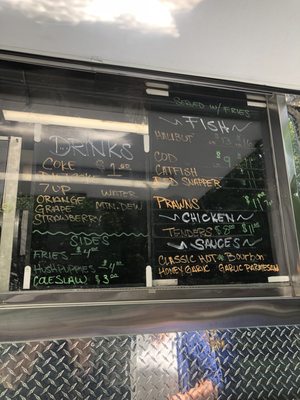 DRINKS
COKE $1.00
7UP WATER
ORANGE MTN. DEW
GRAPE
STRAWBERRY
SIDES
FRIES $4.00
HUSHPUPPIES $4.00
COLESLAW $3.00
SERVED W/ FRIES
FISH
HALIBUT
COD $9
CATFISH
RED SNAPPER
PRAWNS $11
CHICKEN
TENDERS $8 $11
SAUCES
CLASSIC HOT BOURBON
HONEY GARLIC GARLIC PARMESAN